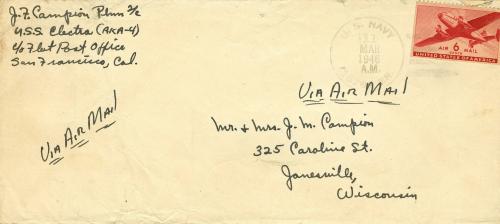 J. F. Campion Phm 3/c
U.S.S. Electra (AKA-4)
c/o Fleet Post Office
San Francisco, Cal.
U.S. NAVY
MAR
1946
A.M.
AIR 6 MAIL
CENTS
UNITED STATES OF AMERICA
VIA AIR MAIL
VIA AIR MAIL
Mr. & Mrs. J. M. Campion
325 Caroline St.
Janesville,
Wisconsin